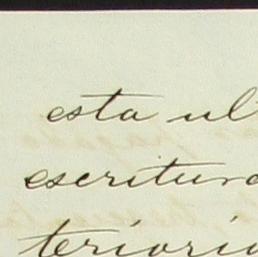 esta ul
escritura
teriorid